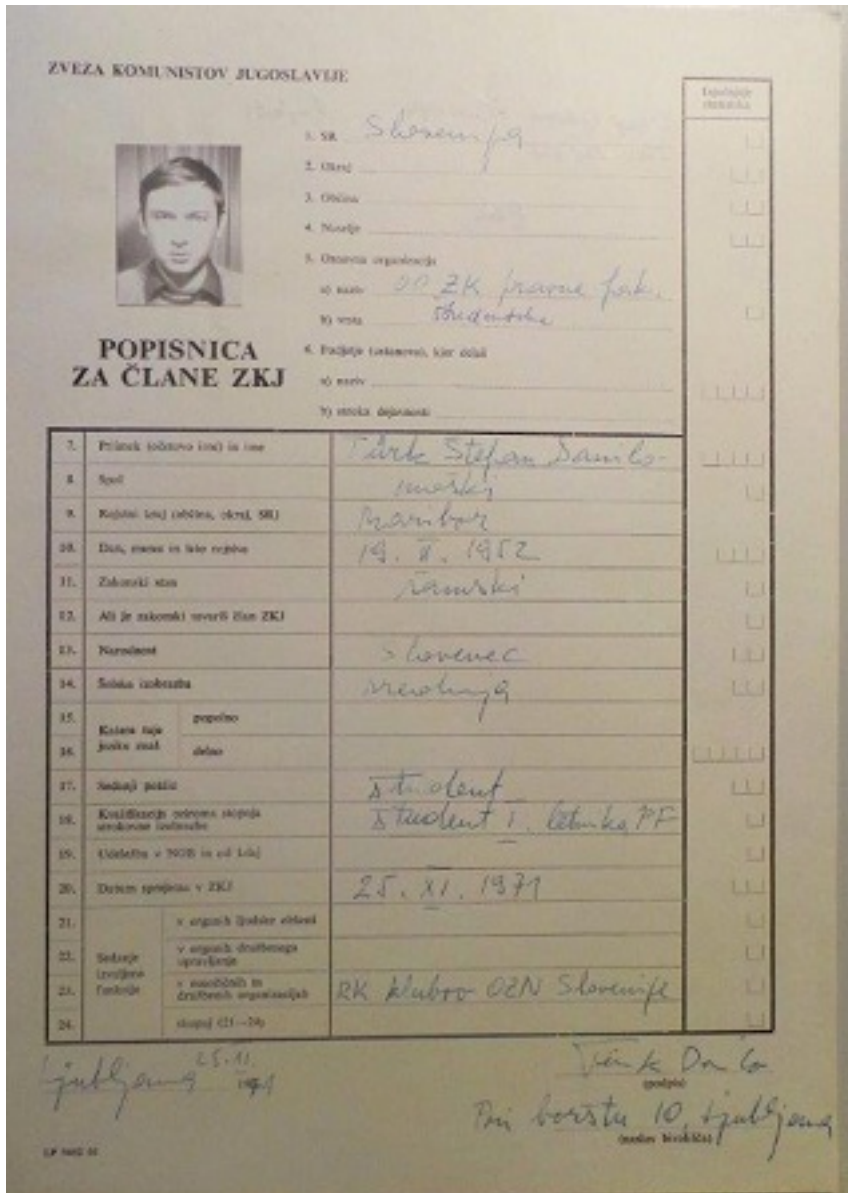 ZVEZA KOMUNISTOV JUGOSLAVIJE
Izpolnjuje
statistika
1. SR Slovenija
2. Okraj
3. Občina
4. Naselje
5. Osnovna organizacija
a) naziv OO ZK pravne fak.
b) vrsta študentska
6. Podjetje (ustanova), kjer delaš
a) naziv
b) stroka dejavnosti
POPISNICA
ZA ČLANE ZKJ
7. Priimek (očetovo ime) in ime Türk Stefan Danilo
8. Spol moški
9. Rojstni kraj (občina, okraj, SR) Maribor
10. Dan, mesec in leto rojstva 19. II. 1952
11. Zakonski stan samski
12. Ali je zakonski tovariš član ZKJ
13. Narodnost Slovenec
14. Šolska izobrazba srednja
15. popolno
Katere tuje
jezike znaš
16. delno
17. Sedanji poklic študent
18. Kvalifikacija oziroma stopnja
strokovne izobrazbe študent I. letnika PF
19. Udeležba v NOB in od kdaj
20. Datum sprejema v ZKJ 25. XI. 1971
21. v organih ljudske oblasti
22. v organih družbenega
upravljanja
Sedanje
izvoljene
funkcije
23. v množičnih in
družbenih organizacijah RK klubov OZN Slovenije
24. skupaj (21–24)
Ljubljana 25.11.
1971
Türk Danilo
(podpis)
Pri borštu 10, Ljubljana
(naslov bivališča)